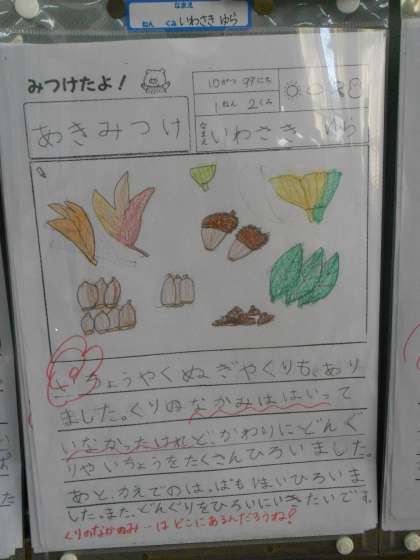 なまえ
ねん くみ いわさき ゆら
みつけたよ!
10がつ 29にち
1ねん 2くみ
あきみつけ
なまえ いわさき ゆら
ちょうやくぬぎやくりも、あり
ました。くりのなかみははいって
いなかったけれどかわりにどんぐ
りやいちょうをたくさんひろいました。
あと、かえでのは、ばもはいひろいま
した。また、どんぐりをひろいにいきたいです。
くりのなかみ…は どこにあるんだろうね?